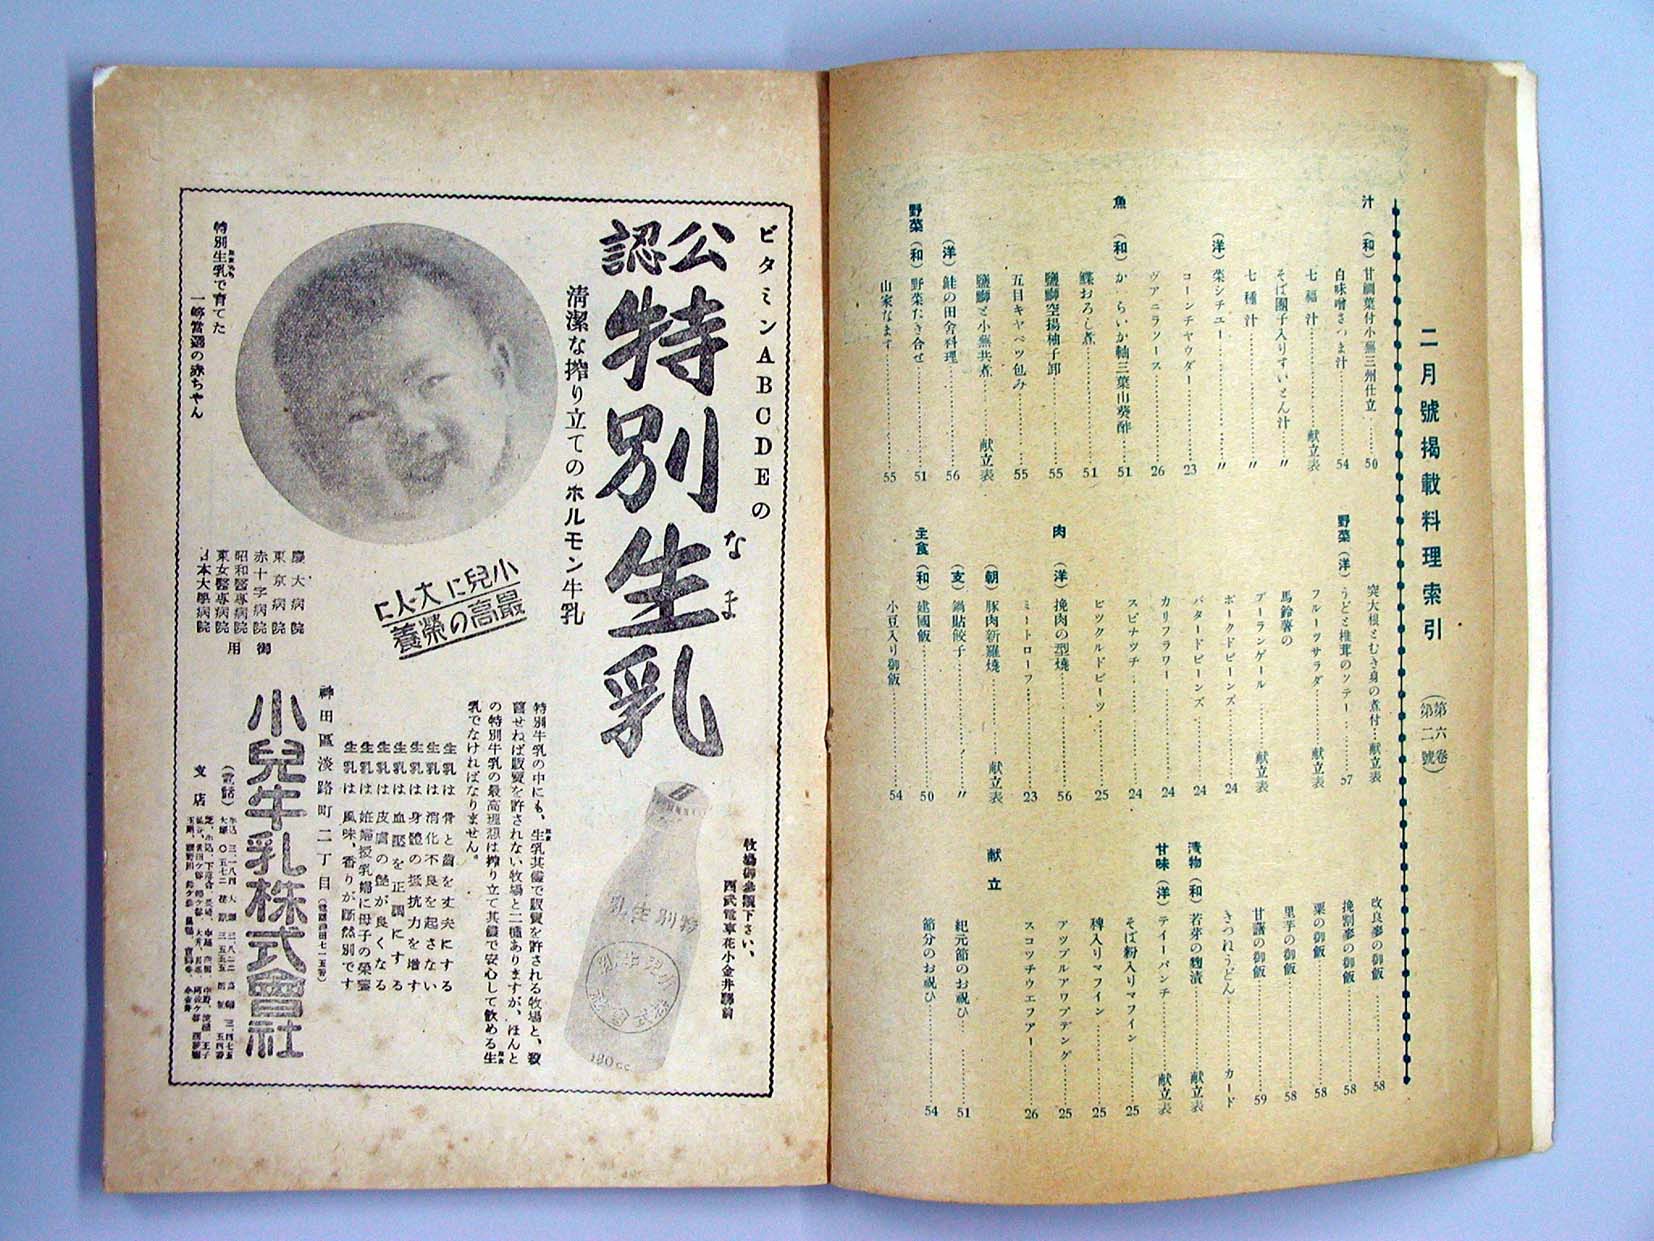 二月號揭載料理索引
(第六卷
第二號)
汁 (和) 甘鯛葉付小蕪三州仕立 50
白味噌さつま汁 54
七福汁 献立表
そば團子入りすいとん汁 〃
七種汁 〃
(洋) 柴シチユー 〃
コーンチヤウダー 23
ヴアニラソース 26
魚 (和) からいか軸三葉山葵酢 51
鰈おろし煮 51
鹽鰤空揚柚子卸 55
五目キヤベツ包み 55
鹽鰤と小蕪共煮 献立表
(洋) 鮭の田舍料理 56
野菜 (和) 野菜たき合せ 51
山家なます 55
突大根とむき身の煮付 献立表
野菜 (洋) うどと椎茸のソテー 57
フルーツサラダ 献立表
馬鈴薯の
デーランゲール 献立表
ポークドビーンズ 24
バタードビーンズ 24
カリフラワー 24
スピナツチ 24
ピツクルドビーツ 25
肉 (洋) 挽肉の型燒 56
ミートローフ 23
(朝) 豚肉新羅燒 献立表
(支) 鍋貼餃子 〃
主食 (和) 建國飯 50
小豆入り御飯 54
改良麥の御飯 58
挽割麥の御飯 58
粟の御飯 58
里芋の御飯 58
甘藷の御飯 59
きつねうどん カード
漬物 (和) 若芽の麴漬 献立表
甘味 (洋) テイーパンチ 献立表
そば粉入りマフイン 25
稗入りマフイン 25
アツプルアワプデング 25
スコツチウエフアー 26
献立
紀元節のお祝ひ 51
節分のお祝ひ 54
ビタミンABCDEの
公認
特別生乳
なま
清潔な搾り立てのホルモン牛乳
特別生乳で育てた
一等當選の赤ちやん
小兒に大人に
最高の榮養
慶大病院
東京病院
赤十字病院
昭和醫專病院
東女醫專病院
日本大學病院
御用
牧場御參觀下さい、
西武電車花小金井驛前
特別生乳
特別牛乳の中にも、生乳其儘で販賣を許される牧場と、殺
菌せねば販賣を許されない牧場と二種ありますが、ほんと
の特別牛乳の最高理想は搾り立て其儘で安心して飲める生
乳でなければなりません。
生乳は 骨と齒を丈夫にする
生乳は 消化不良を起さない
生乳は 身體の抵抗力を增す
生乳は 血壓を正調にする
生乳は 皮膚の艶が良くなる
生乳は 妊婦授乳婦に母子の榮養
生乳は 風味、香りが斷然別です
神田區淡路町二丁目
小兒牛乳株式會社
(電話)
支店